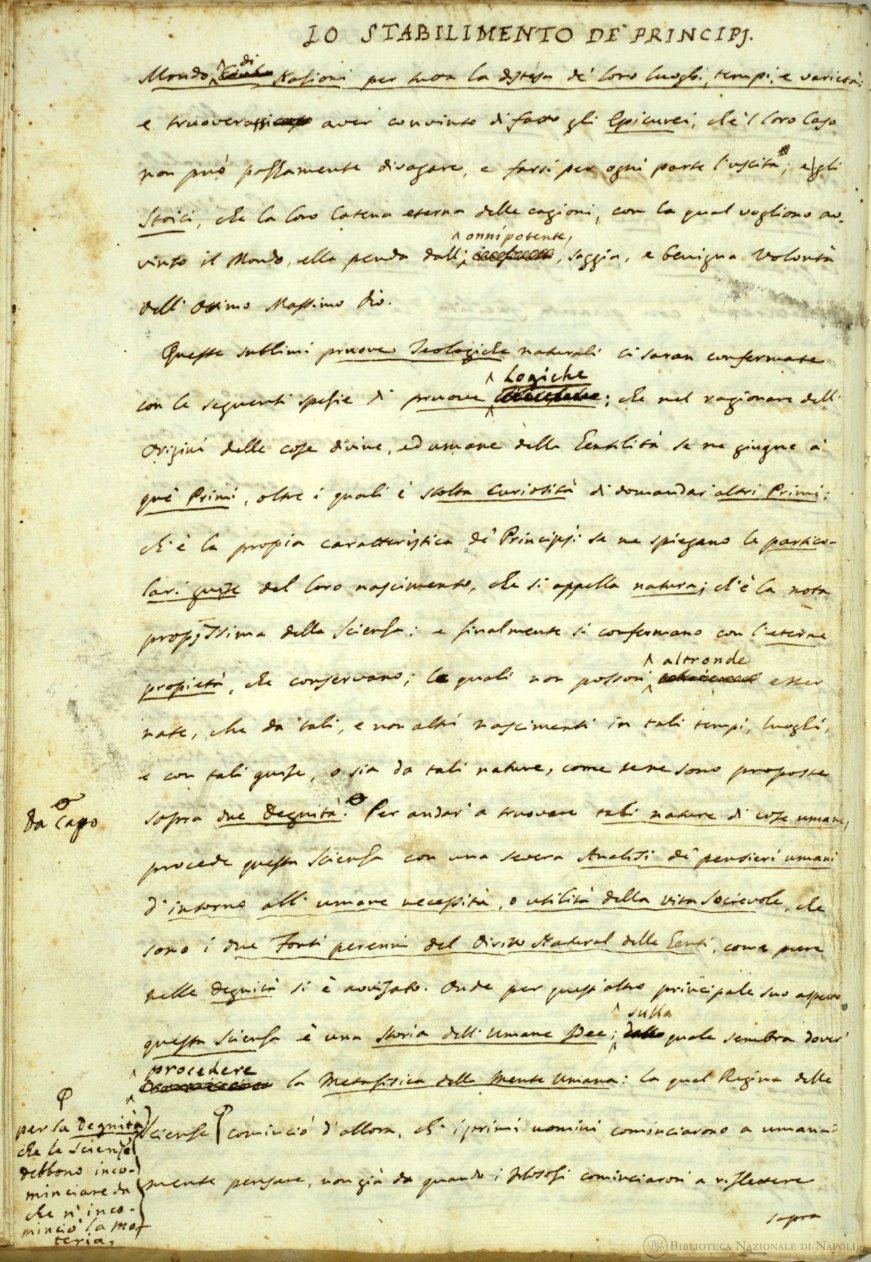 LO STABILIMENTO DE' PRINCIPJ.
Mondo di Nazioni per tutta la distesa de' loro luoghi, tempi, e varietà;
e truoverassi aver convinto di fatto gli Epicurei, che 'l loro Caso
non può pazzamente divagare, e farsi per ogni parte l'uscita; e gli
Stoici, che la loro Catena eterna delle cagioni, con la qual vogliono av-
vinto il Mondo, ella penda dall' onnipotente, saggia, e benigna Volontà
dell' Ottimo Massimo Dio.
Queste sublimi pruove Teologiche naturali ci saran confermate
con le seguenti spezie di pruove Logiche; che nel ragionare dell'
Origini delle cose divine, ed umane della Gentilità se ne giugne a
que' Primi, oltre i quali è stolta Curiosità di domandar' altri Primi;
ch'è la propia caratteristica de' Principj: se ne spiegano le partico-
lari guise del loro nascimento, che si appella natura; ch'è la nota
propijssima della Scienza; e finalmente si confermano con l'eterne
propietà, che conservano; le quali non posson' altronde esser
nate, che da tali, e non altri nascimenti in tali tempi, luoghi,
e con tali guise, o sia da tali nature, come se ne sono proposte
sopra due Degnità. Per andar' a truovare tali nature di cose umane,
Da Capo
procede questa Scienza con una severa Analisi de' pensieri umani
d'intorno all' umane necessità, o utilità della vita Socievole, che
sono i due Fonti perenni del Diritto Natural delle Genti, come pure
nelle Degnità si è avvisato. Onde per quest' altro principale suo aspetto
questa Scienza è una Storia dell' Umane Idee; sulla quale sembra dover
procedere la Metafisica della Mente Umana: la qual Regina delle
Scienze cominciò d'allora, ch'i primi uomini cominciarono a umana-
per la Degnità
che le Scienze
debbono inco-
minciare da
che n' inco-
minciò la ma-
teria,
mente pensare, non già da quando i Filosofi cominciaron' a riflettere
sopra
BIBLIOTECA NAZIONALE DI NAPOLI